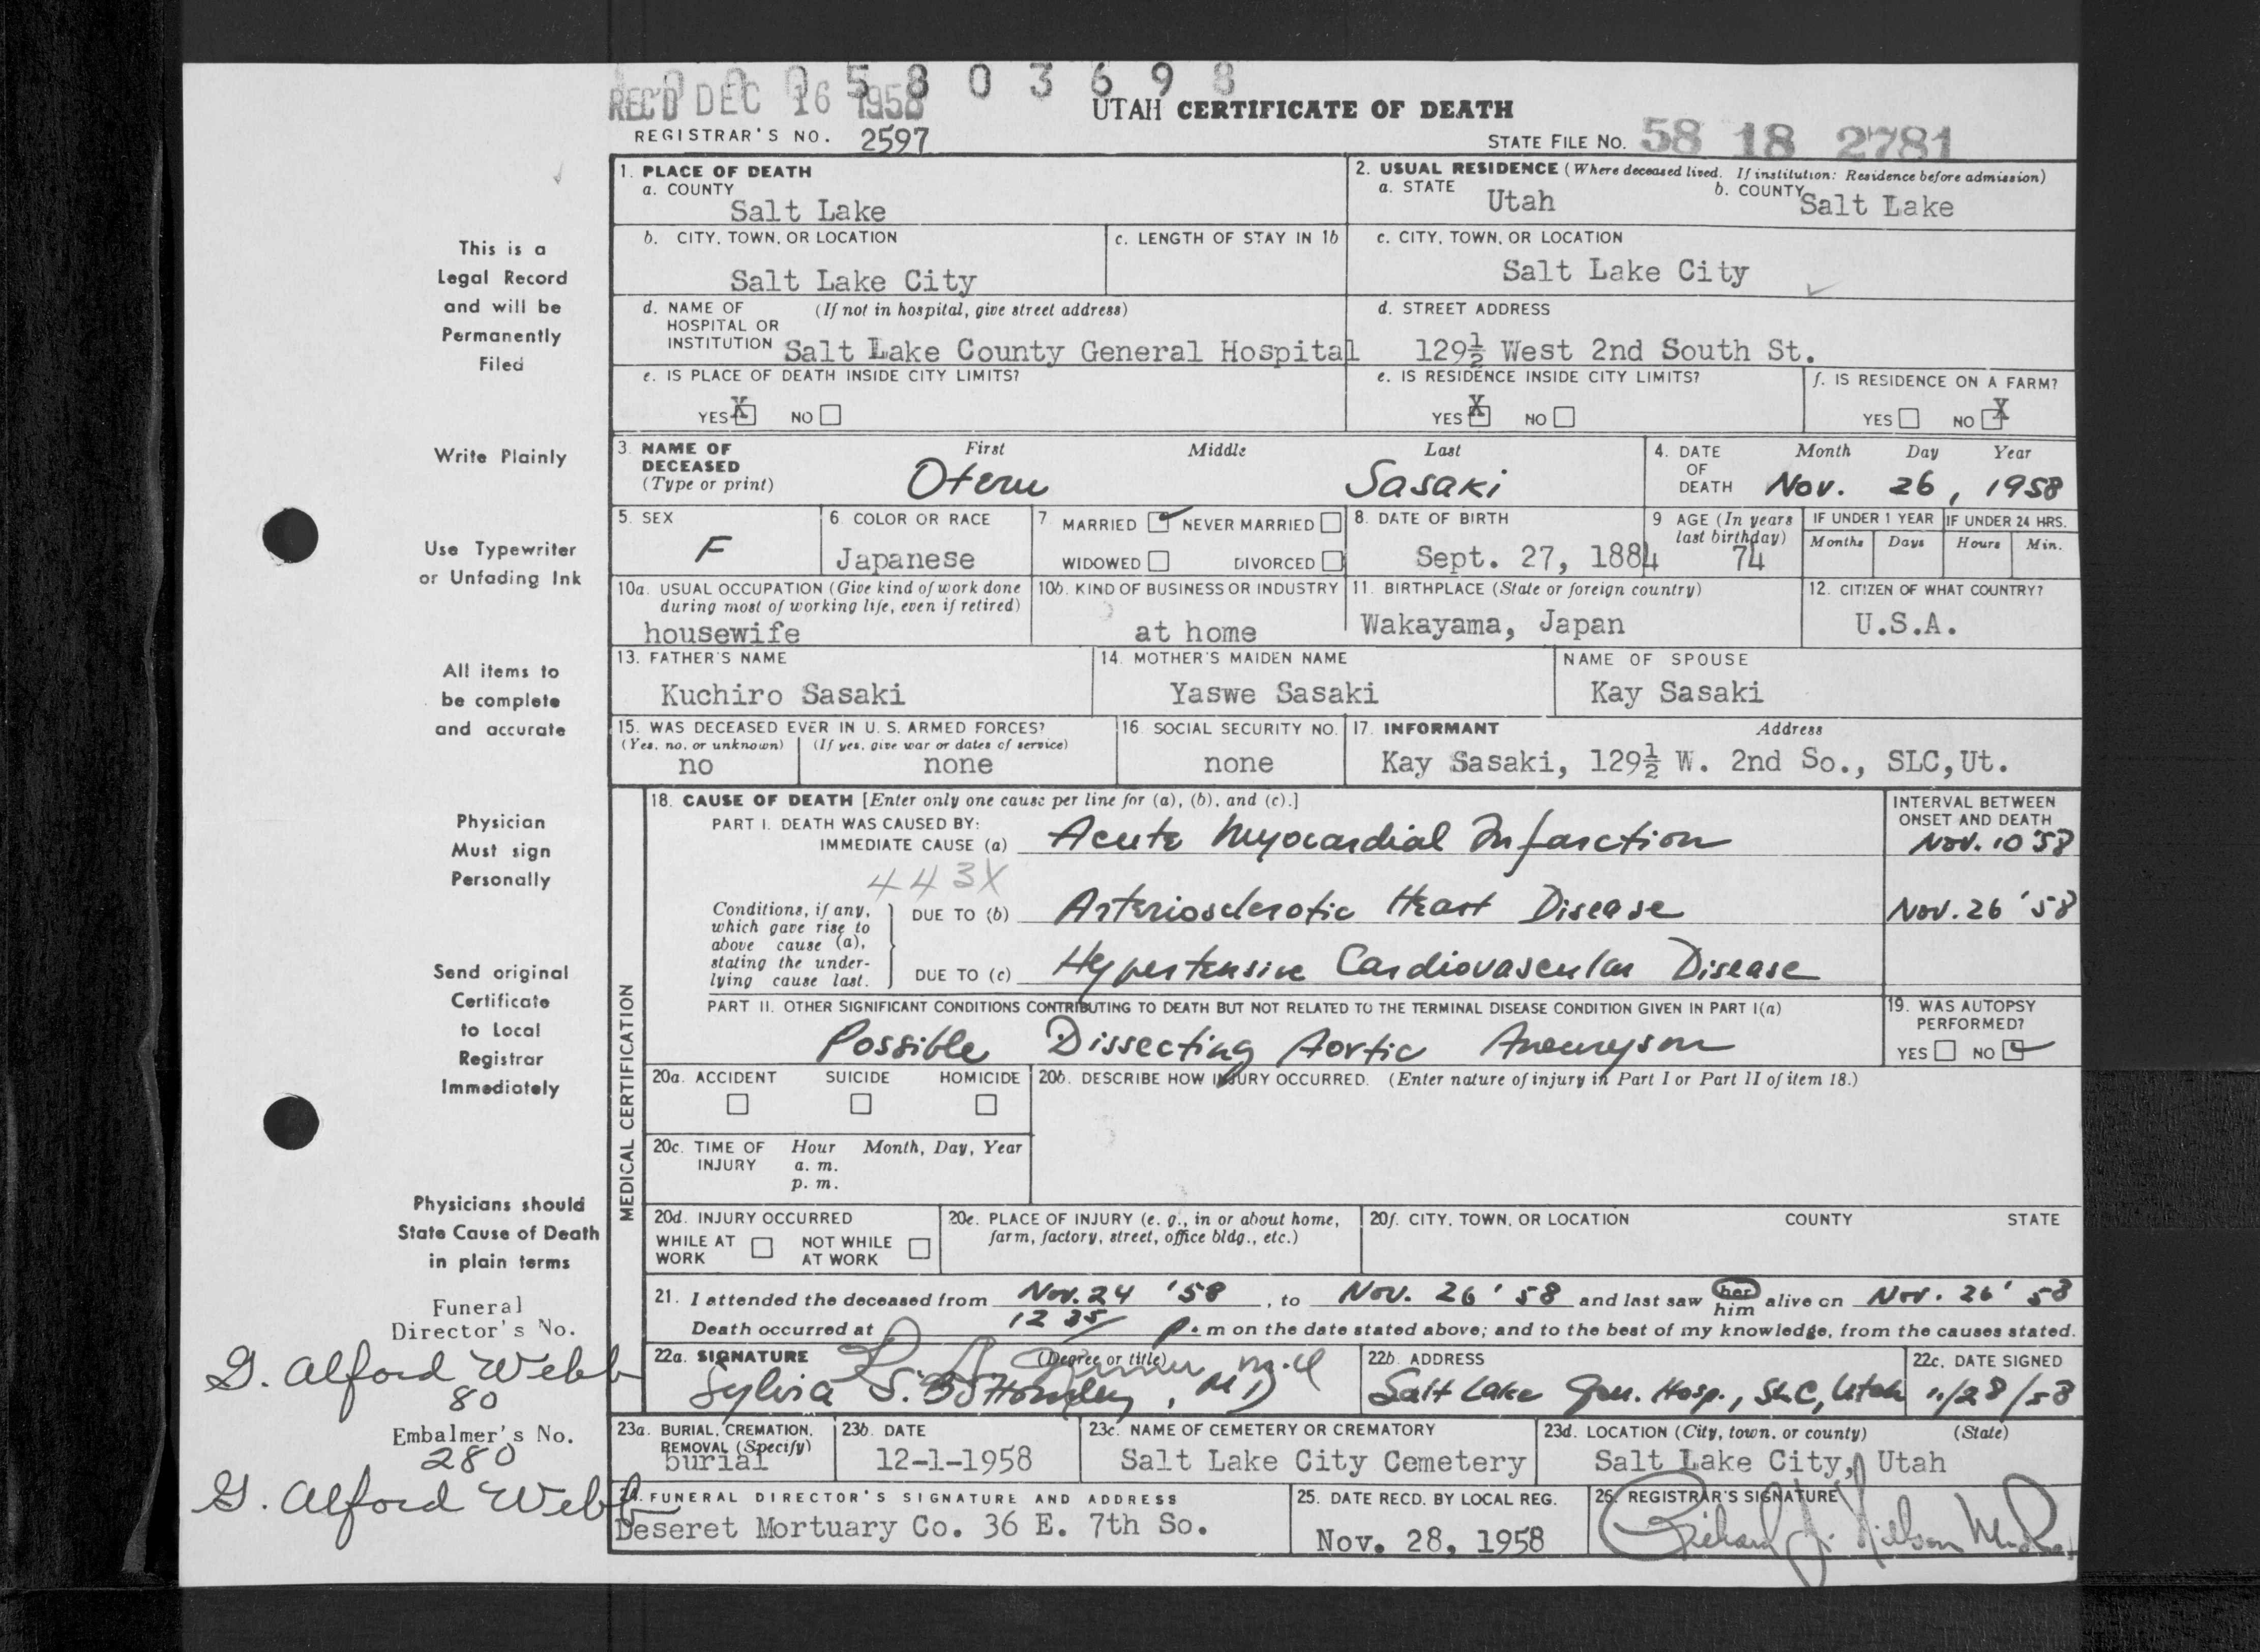 0 0 0 5 8 0 3 6 9 8
REC'D DEC 16 1958
UTAH CERTIFICATE OF DEATH
REGISTRAR'S NO. 2597
STATE FILE NO. 58 18 2781
This is a
Legal Record
and will be
Permanently
Filed
Write Plainly
Use Typewriter
or Unfading Ink
All items to
be complete
and accurate
Physician
Must sign
Personally
Send original
Certificate
to Local
Registrar
Immediately
Physicians should
State Cause of Death
in plain terms
Funeral
Director's No.
G. Alford Webb
80
Embalmer's No.
280
G. Alford Webb
1. PLACE OF DEATH
a. COUNTY
Salt Lake
2. USUAL RESIDENCE (Where deceased lived. If institution: Residence before admission)
a. STATE Utah b. COUNTY Salt Lake
b. CITY, TOWN, OR LOCATION
Salt Lake City
c. LENGTH OF STAY IN 1b
c. CITY, TOWN, OR LOCATION
Salt Lake City
d. NAME OF (If not in hospital, give street address)
HOSPITAL OR
INSTITUTION Salt Lake County General Hospital
d. STREET ADDRESS
129½ West 2nd South St.
e. IS PLACE OF DEATH INSIDE CITY LIMITS?
YES X NO
e. IS RESIDENCE INSIDE CITY LIMITS?
YES X NO
f. IS RESIDENCE ON A FARM?
YES NO X
3. NAME OF DECEASED (Type or print)
First Middle Last
Oteru Sasaki
4. DATE OF DEATH Month Day Year
Nov. 26, 1958
5. SEX
F
6. COLOR OR RACE
Japanese
7. MARRIED ✓ NEVER MARRIED
WIDOWED DIVORCED
8. DATE OF BIRTH
Sept. 27, 1884
9 AGE (In years last birthday)
74
IF UNDER 1 YEAR
Months Days
IF UNDER 24 HRS.
Hours Min.
10a. USUAL OCCUPATION (Give kind of work done
during most of working life, even if retired)
housewife
10b. KIND OF BUSINESS OR INDUSTRY
at home
11. BIRTHPLACE (State or foreign country)
Wakayama, Japan
12. CITIZEN OF WHAT COUNTRY?
U.S.A.
13. FATHER'S NAME
Kuchiro Sasaki
14. MOTHER'S MAIDEN NAME
Yaswe Sasaki
NAME OF SPOUSE
Kay Sasaki
15. WAS DECEASED EVER IN U. S. ARMED FORCES?
(Yes, no, or unknown) (If yes, give war or dates of service)
no none
16. SOCIAL SECURITY NO.
none
17. INFORMANT Address
Kay Sasaki, 129½ W. 2nd So., SLC,Ut.
MEDICAL CERTIFICATION
18. CAUSE OF DEATH [Enter only one cause per line for (a), (b), and (c).]
INTERVAL BETWEEN
ONSET AND DEATH
PART I. DEATH WAS CAUSED BY:
IMMEDIATE CAUSE (a) Acute Myocardial Infarction Nov. 10 '58
443X
Conditions, if any,
which gave rise to
above cause (a),
stating the under-
lying cause last.
DUE TO (b) Arteriosclerotic Heart Disease Nov. 26 '58
DUE TO (c) Hypertensive Cardiovascular Disease
PART II. OTHER SIGNIFICANT CONDITIONS CONTRIBUTING TO DEATH BUT NOT RELATED TO THE TERMINAL DISEASE CONDITION GIVEN IN PART I(a)
Possible Dissecting Aortic Aneurysm
19. WAS AUTOPSY
PERFORMED?
YES NO ✓
20a. ACCIDENT SUICIDE HOMICIDE
20b. DESCRIBE HOW INJURY OCCURRED. (Enter nature of injury in Part I or Part II of item 18.)
20c. TIME OF INJURY Hour Month, Day, Year
a. m.
p. m.
20d. INJURY OCCURRED
WHILE AT WORK NOT WHILE AT WORK
20e. PLACE OF INJURY (e. g., in or about home,
farm, factory, street, office bldg., etc.)
20f. CITY, TOWN, OR LOCATION COUNTY STATE
21. I attended the deceased from Nov. 24 '58, to Nov. 26 '58 and last saw her him alive on Nov. 26 '58
Death occurred at 12 35 p. m on the date stated above; and to the best of my knowledge, from the causes stated.
22a. SIGNATURE (Degree or title)
Sylvia S. , MD
22b. ADDRESS
Salt Lake Gen. Hosp., SLC, Utah
22c. DATE SIGNED
11/28/58
23a. BURIAL, CREMATION,
REMOVAL (Specify)
burial
23b. DATE
12-1-1958
23c. NAME OF CEMETERY OR CREMATORY
Salt Lake City Cemetery
23d. LOCATION (City, town, or county) (State)
Salt Lake City, Utah
24. FUNERAL DIRECTOR'S SIGNATURE AND ADDRESS
Deseret Mortuary Co. 36 E. 7th So.
25. DATE RECD. BY LOCAL REG.
Nov. 28, 1958
26. REGISTRAR'S SIGNATURE
Richard J. Nielson